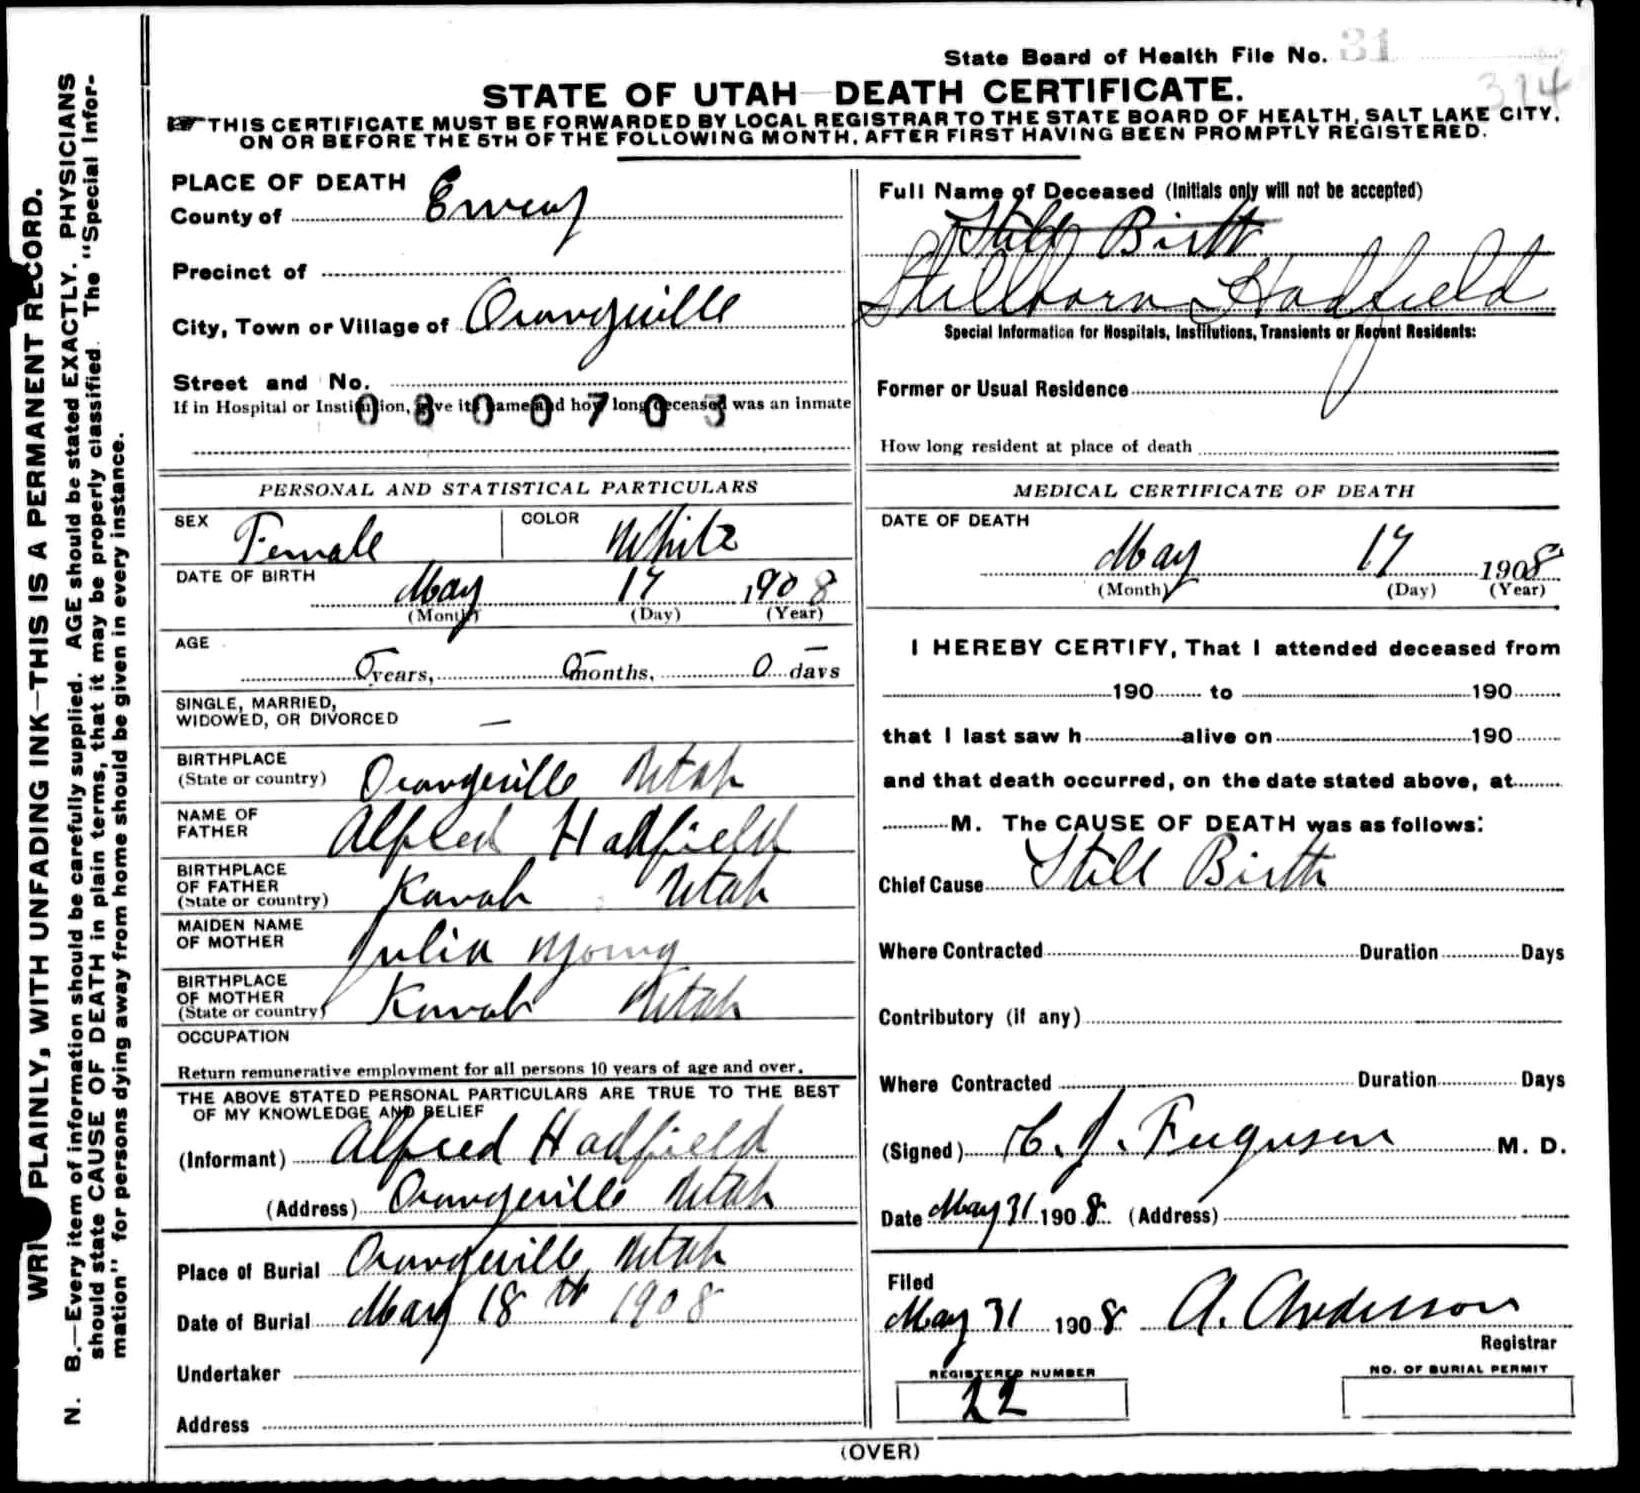 State Board of Health File No. 31
314
STATE OF UTAH—DEATH CERTIFICATE.
THIS CERTIFICATE MUST BE FORWARDED BY LOCAL REGISTRAR TO THE STATE BOARD OF HEALTH, SALT LAKE CITY,
ON OR BEFORE THE 5TH OF THE FOLLOWING MONTH, AFTER FIRST HAVING BEEN PROMPTLY REGISTERED.
WRI PLAINLY, WITH UNFADING INK—THIS IS A PERMANENT RECORD.
N. B.—Every item of information should be carefully supplied. AGE should be stated EXACTLY. PHYSICIANS
should state CAUSE OF DEATH in plain terms, that it may be properly classified. The "Special Infor-
mation" for persons dying away from home should be given in every instance.
PLACE OF DEATH
County of Emery
Precinct of
City, Town or Village of Orangeville
Street and No.
If in Hospital or Institution, give its name and how long deceased was an inmate
0800703
PERSONAL AND STATISTICAL PARTICULARS
SEX Female COLOR White
DATE OF BIRTH May 17 1908
(Month) (Day) (Year)
AGE
0 years, 0 months, 0 days
SINGLE, MARRIED,
WIDOWED, OR DIVORCED —
BIRTHPLACE
(State or country) Orangeville Utah
NAME OF
FATHER Alfred Hadfield
BIRTHPLACE
OF FATHER
(State or country) Kanab Utah
MAIDEN NAME
OF MOTHER Julia Young
BIRTHPLACE
OF MOTHER
(State or country) Kanab Utah
OCCUPATION
Return remunerative employment for all persons 10 years of age and over.
THE ABOVE STATED PERSONAL PARTICULARS ARE TRUE TO THE BEST
OF MY KNOWLEDGE AND BELIEF
(Informant) Alfred Hadfield
(Address) Orangeville Utah
Place of Burial Orangeville, Utah
Date of Burial May 18th 1908
Undertaker
Address
Full Name of Deceased (Initials only will not be accepted)
Still Birth
Stillborn Hadfield
Special Information for Hospitals, Institutions, Transients or Recent Residents:
Former or Usual Residence
How long resident at place of death
MEDICAL CERTIFICATE OF DEATH
DATE OF DEATH
May 17 1908
(Month) (Day) (Year)
I HEREBY CERTIFY, That I attended deceased from
190 to 190
that I last saw h alive on 190
and that death occurred, on the date stated above, at
M. The CAUSE OF DEATH was as follows:
Chief Cause Still Birth
Where Contracted Duration Days
Contributory (if any)
Where Contracted Duration Days
(Signed) C. J. Ferguson M. D.
Date May 31 1908 (Address)
Filed
May 31 1908 A. Anderson
Registrar
REGISTERED NUMBER
22
NO. OF BURIAL PERMIT
(OVER)